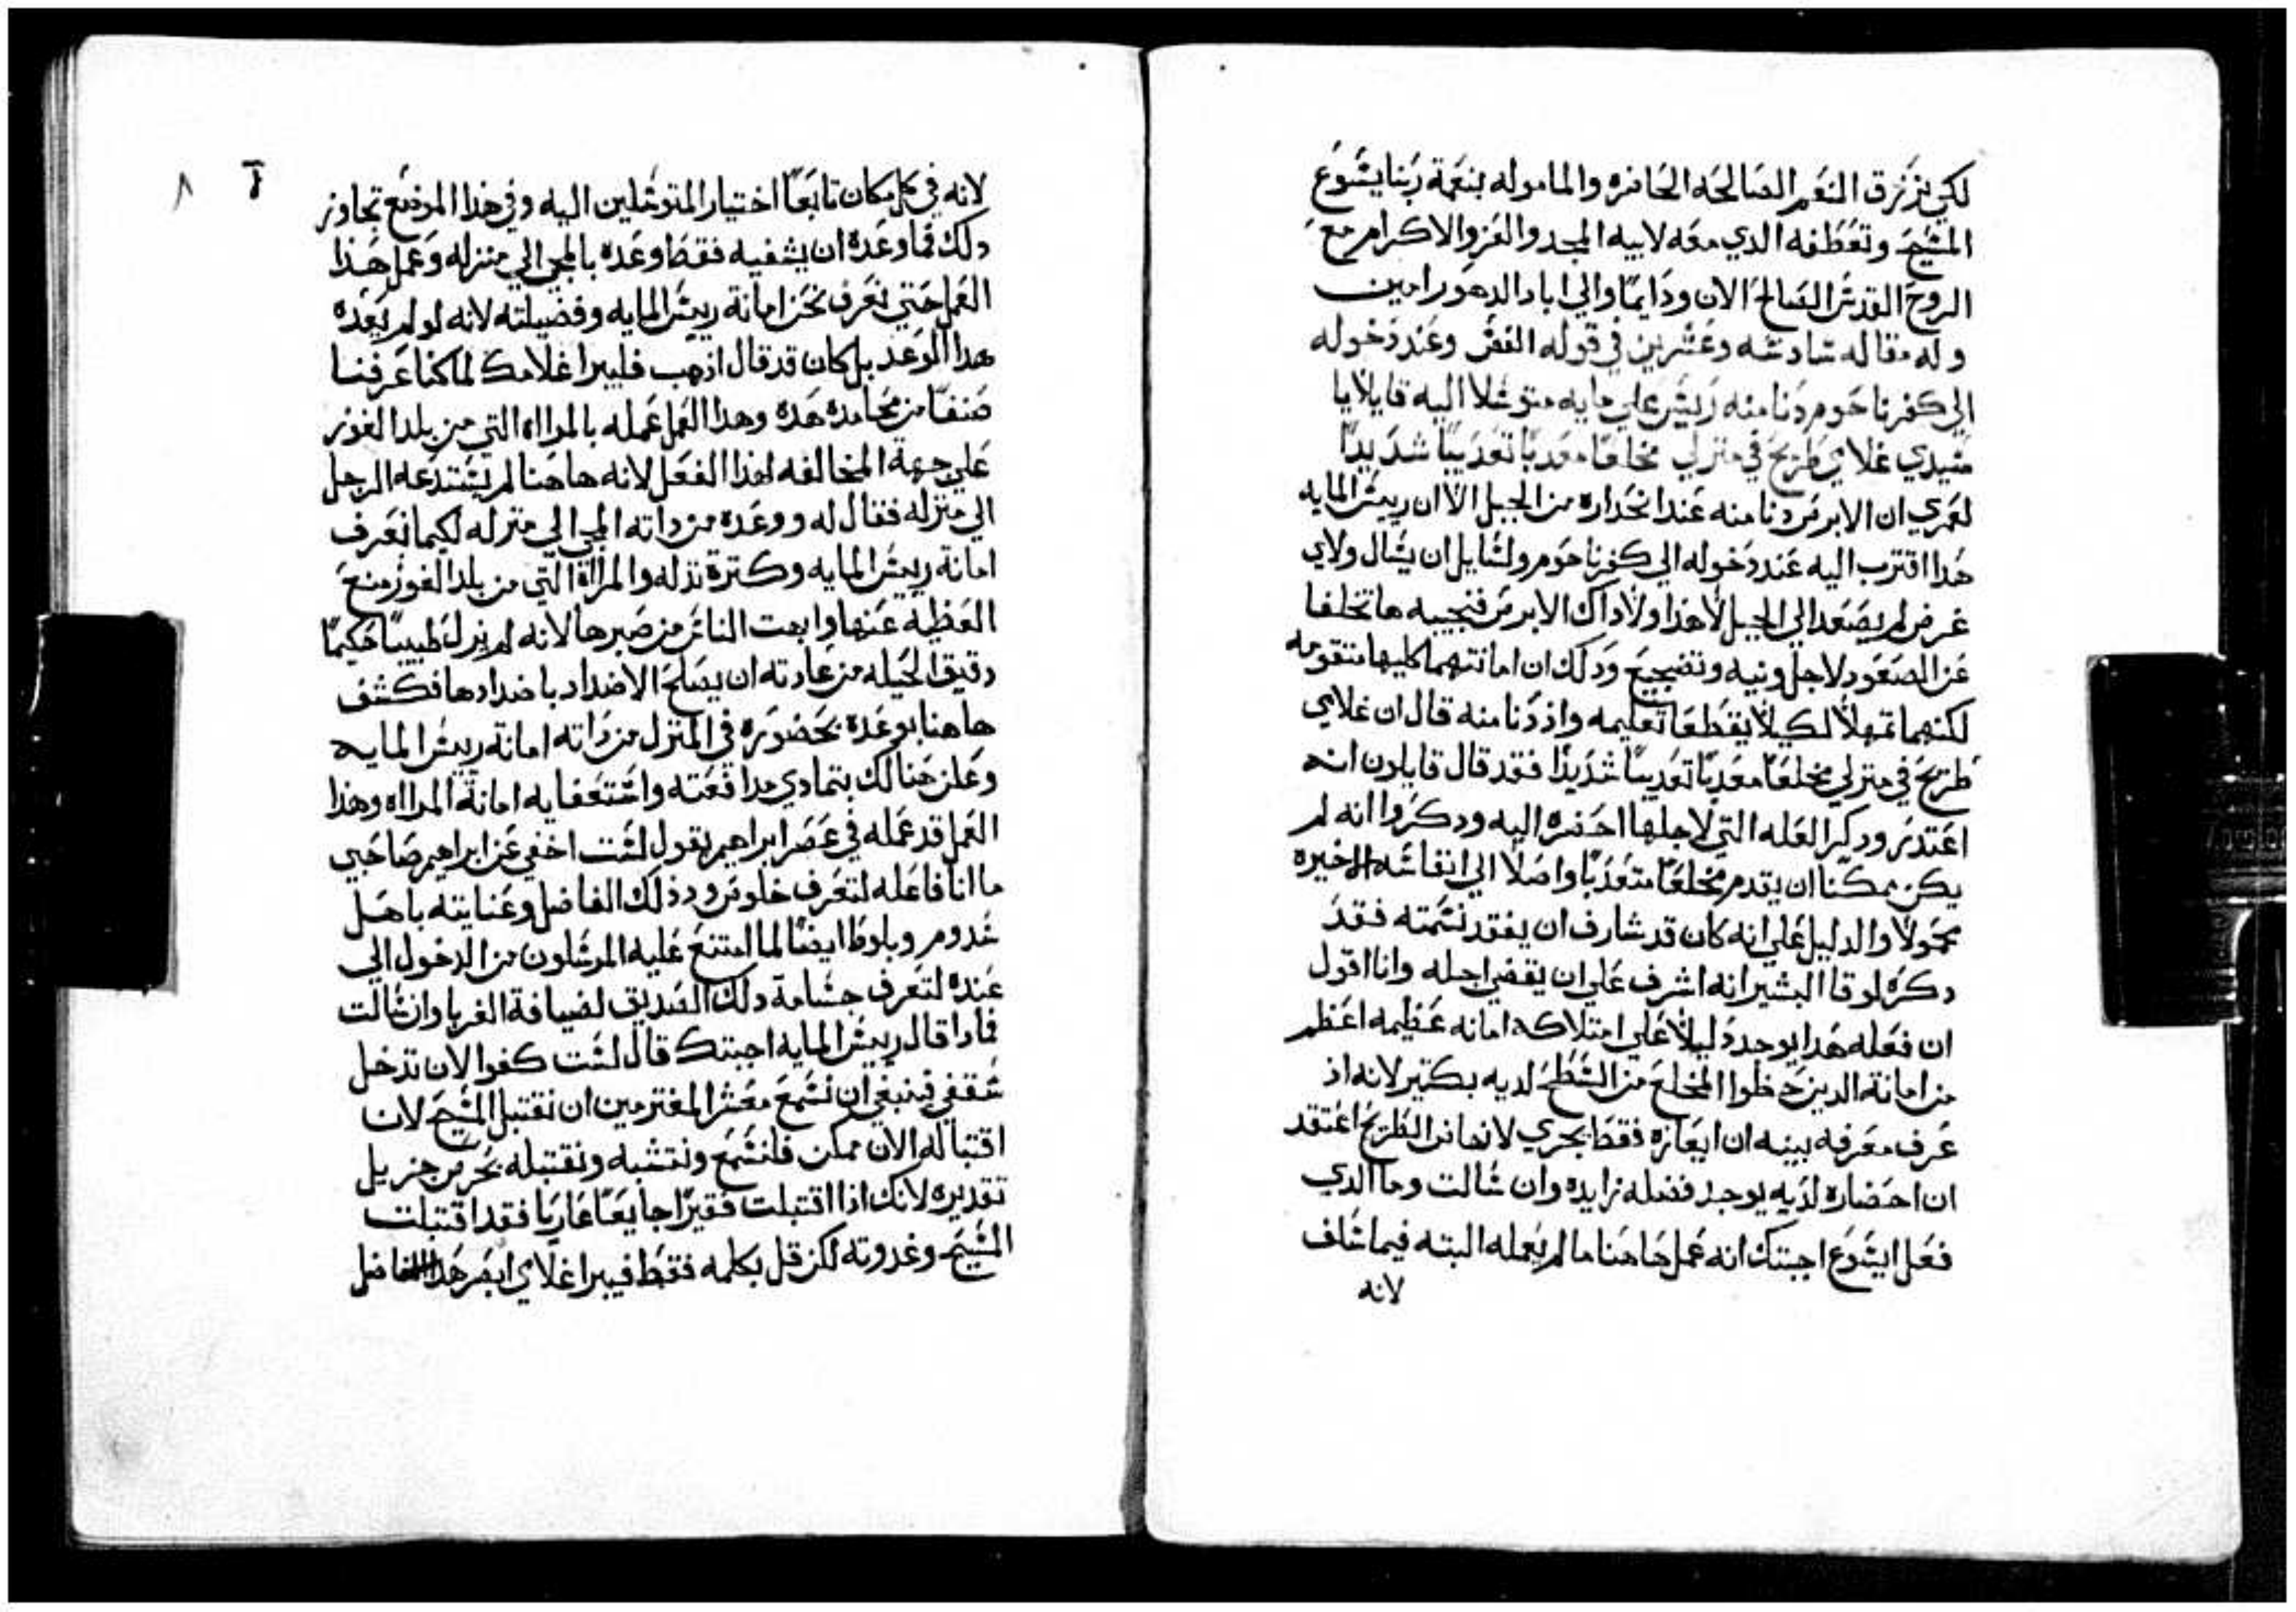 لكي نرزق النعم الصالحه الحاضره والماموله بنعمة ربنا يشوع
المشيح وتعطفه الدي معه لابيه المجد والعز والاكرام مع
الروح القدش الصالح الان ودايمًا والي اباد الدهور امين
وله مقاله شادشه وعشرين في قوله الفصل وعند دخوله
الي كفرناحوم دنا منه رييش علي مايه متوشلا اليه قايلا يا
شيدي غلامي طريح في منزلي مخلعًا معدبًا تعديبًا شديدًا
لعمري ان الابرص دنا منه عند انحداره من الجبل الا ان رييش المايه
هدا اقترب اليه عند دخوله الي كفرناحوم ولشايل ان يشال ولاي
غرض لم يصعد الي الجبل لا هذا ولا داك الابرص فنجيبه ما تخلفا
عن الصعود لاجل ونيه وتضجيع ودلك ان امانتهما كليهما متقومه
لكنهما تمهلا لكيلا يقطعا تعليمه واذ دنا منه قال ان غلامي
طريح في منزلي مخلعًا معدبًا تعديبًا شديدًا فقد قال قايلون انه
اعتدر ودكر العله التي لاجلها احضره اليه ودكروا انه لم
يكن ممكنا ان يقدم مخلعًا متعدبًا واصلا الي انفاشه الاخيره
محمولا والدليل علي انه كان قد شارف ان يفقد نشمته فقد
دكره لوقا البشير انه اشرف علي ان يقضي اجله وانا اقول
ان فعله هدا يوجد دليلا علي امتلاكه امانه عظيمه اعظم
من امانة الدين حطوا المخلع من الشطح لديه بكتير لانه اذ
عرف معرفه بينه ان ايعازه فقط يجري لانهاض الطريح اعتقد
ان احضاره لديه يوجد فضله زايده وان شالت وما الدي
فعل ايشوع اجبتك انه عمل هاهنا ما لم يعمله البته فيما شلف
لانه
لانه في كل مكان تابعًا اختيار المتوشلين اليه وفي هذا الموضع تجاوز
دلك فما وعده ان يشفيه فقط وعده بالمجي الي منزله وعمل هذا
العمل حتي نعرف نحن امانة رييش المايه وفضيلته لانه لو لم يعده
هدا الوعد بل كان قد قال اذهب فليبرا غلامك لما كنا عرفنا
صنفًا من محامده هده وهدا العمل عمله بالمرااه التي من بلد الغور
علي جهة المخالفه لهذا الفعل لانه هاهنا لم يشتدعه الرجل
الي منزله فقال له ووعده من داته المجي الي منزله لكيما نعرف
امانة رييش المايه وكترة تدلله والمرااة التي من بلد الغور منع
العظيه عنها وابهت الناش من صبرها لانه لم يزل طبيبًا حكيمًا
دقيق الحيله من عادته ان يصلح الاضداد باضدادها فكشف
هاهنا بوعده بحضوره في المنزل من داته امانة رييش المايه
وعلن هنالك بتمادي مدافعته واشتعفايه امانة المرااه وهذا
العمل قد عمله في عصر ابراهيم بقول لشت اخفي عن ابراهيم صاحبي
ما انا فاعله لتعرف خلوص ود ذلك الفاضل وعنايته باهل
شدوم وبلوط ايضًا لما امتنع عليه المرشلون من الدخول الي
عنده لتعرف جشامة دلك الصديق لضيافة الغربا وان شالت
فمادا قال رييش المايه اجبتك قال لشت كفوا لان تدخل
شقفي فينبغي ان نشمع معشر المغترمين ان نقتبل المشيح لان
اقتباله الان ممكن فلنشمع ونتشبه ونقتبله بحرص جزيل
تقديره لانك اذا اقتبلت فقيرًا جايعًا عاريًا فقد اقتبلت
المشيح وغدوته لكن قل بكلمه فقط فيبرا غلامي ابصر هدا الفاضل